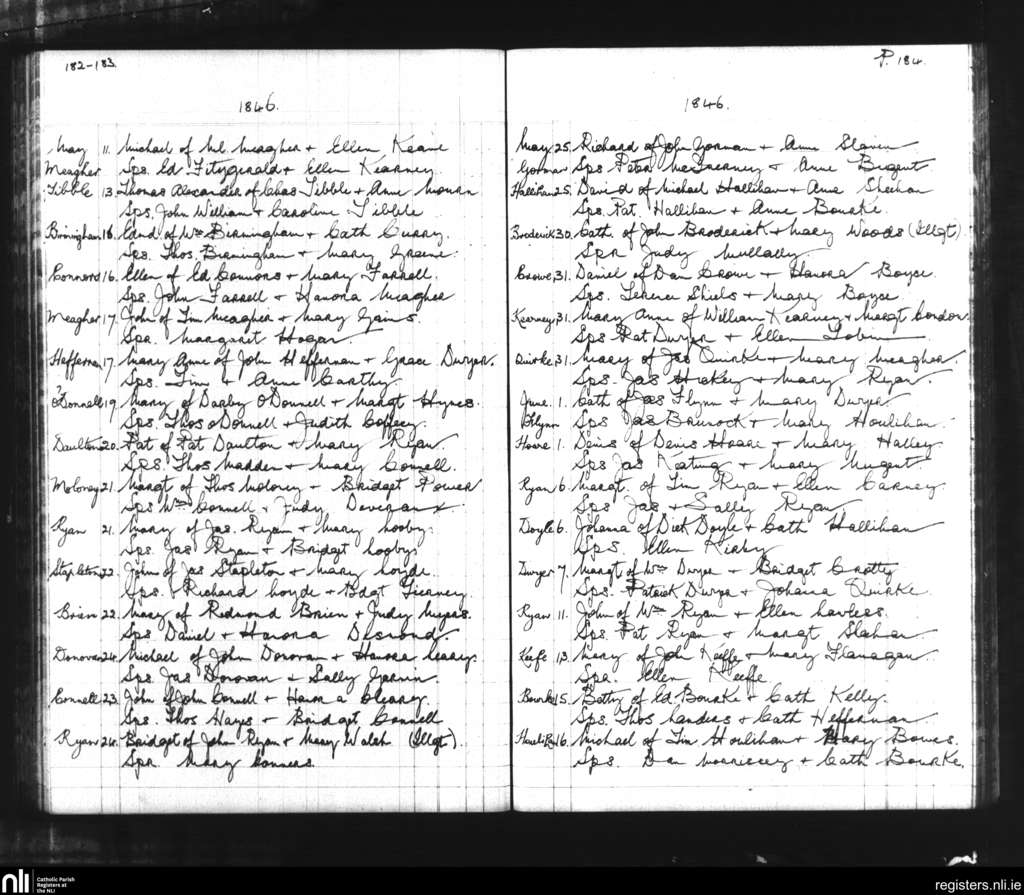 182-183.
1846.
May 11. Michael of Ml. Meagher + Ellen Keane
Meagher Sps. Ed Fitzgerald + Ellen Kearney
Tibble 13. Thomas Alexander of Chas Tibble + Anne Moran
Sps. John William + Caroline Tibble
Birmingham 16. Edmd of Wm Birmingham + Cath Curry.
Sps. Thos. Birmingham + Mary
Connors 16. Ellen of Ed Connors + Mary Farrell.
Sps. John Farrell + Hanora Meagher
Meagher 17. John of Tim Meagher + Mary
Spr. Margaret Hogan.
Heffernan 17. Mary Anne of John Heffernan + Grace Dwyer.
Sps. Tim + Anne Carthy.
? O'Donnell 19. Mary of Darby O'Donnell + Margt Hynes.
Sps. Thos O'Donnell + Judith Coffey.
Daulton 20. Pat of Pat Daulton + Mary Ryan.
Sps. Thos Madden + Mary Connell.
Moloney 21. Margt of Thos Moloney + Bridget Power
Sps Wm Connell + Judy Deveraux
Ryan 21. Mary of Jas. Ryan + Mary Looby.
Sps. Jas Ryan + Bridget Looby.
Stapleton 22. John of Jas Stapleton + Mary Loyde.
Sps. Richard Loyde + Bdgt Tierney.
Brien 22. Mary of Redmond Brien + Judy
Sps. Daniel + Hanora Desmond.
Donovan 24. Michael of John Donovan + Hanora Leary.
Sps. Jas Donovan + Sally
Connell 23. John of John Connell + Hanora Cleary.
Sps. Thos Hayes + Bridget Connell
Ryan 24. Bridget of John Ryan + Mary Walsh (Illgt).
Spr Mary Connors.
P. 184.
1846.
May 25. Richard of John Gorman + Anne Slavin
Gorman Sps. Peter McInerney + Anne
Hallihan 25. David of Michael Hallihan + Anne Sheehan
Sps. Pat. Hallihan + Anne Bourke.
Broderick 30. Cath. of John Broderick + Mary Woods (Illgt)
Spr Judy Mullally
Crowe, 31. Daniel of Dan Crowe + Hanora Boyce.
Sps. Terence Shiels + Mary Boyce
Kearney, 31. Mary Anne of William Kearney + Margt Condon.
Sps Pat Dwyer + Ellen Tobin
Quirke, 31. Mary of Jas Quirke + Mary Meagher.
Sps. Jas Hickey + Mary Ryan.
June. 1. Cath of Jas Flynn + Mary Dwyer
Flynn Sps Jas + Mary Houlihan.
Hoare 1. Denis of Denis Hoare + Mary Halley
Sps Jas Keating + Mary Nugent
Ryan 6. Margt. of Tim Ryan + Ellen Carney.
Sps Jas + Salley Ryan
Doyle 6. Johanna of Dick Doyle + Cath Hallihan
Sps. Ellen Kirby
Dwyer 7. Margt of Wm Dwyer + Bridget Crotty
Sps. Patrick Dwyer + Johanna Quirke.
Ryan 11. John of Wm Ryan + Ellen Lawless.
Sps. Pat Ryan + Margt
Keefe 13. Mary of John Keeffe + Mary Flanagan.
Spr. Ellen Keeffe
Bourke 15. Batty of Ed Bourke + Cath Kelly.
Sps. Thos Landers + Cath Heffernan
16. Michael of Tim Houlihan + Mary Bowes.
Sps. Dan Morrissey + Cath Bourke.
nli
Catholic Parish
Registers at
the NLI
registers.nli.ie